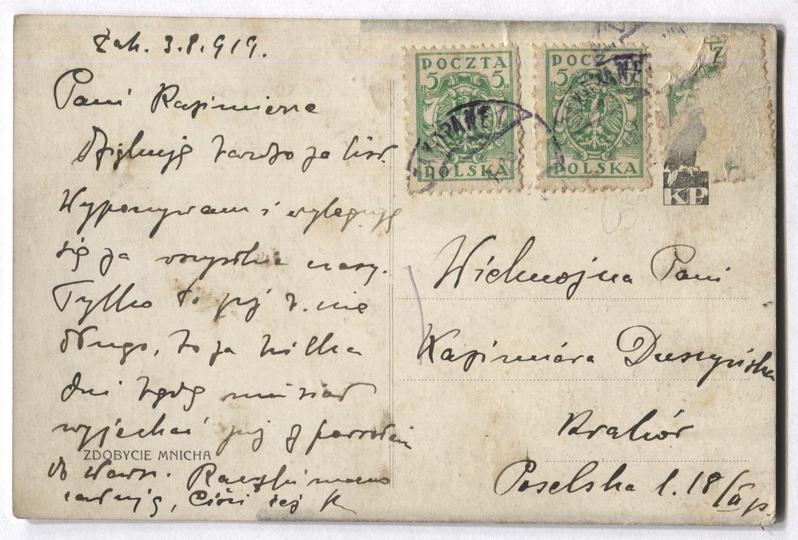 Zak. 3.8.919.
Pani Kazimiero
Dziękuję bardzo za list.
Wypoczywam i wyleguję
się za wszystkie czasy.
Tylko to już b. nie
długo, bo za kilka
dni będę musiał
wyjechać już z powrotem
do Warsz. Rączki mocno
całuję,
ZDOBYCIE MNICHA
POCZTA
5 5
POLSKA
POCZTA
5
POLSKA
KP
Wielmożna Pani
Kazimiera Duszyńska
Kraków
Poselska l. 18/II p.